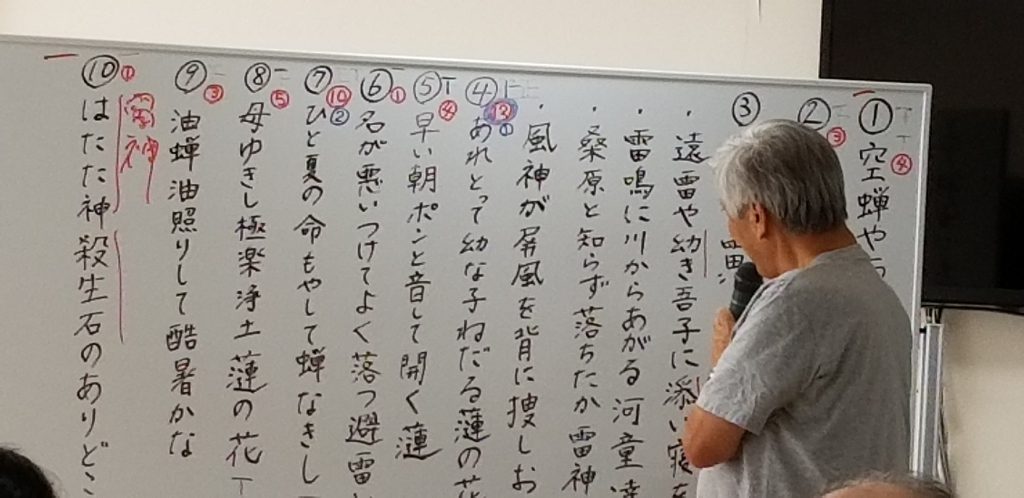 ① ④ 空蝉や
② ③
③
・遠雷や幼き吾子に添い寝
・雷鳴に川からあがる河童達
・桑原と知らず落ちたか雷神
・風神が屏風を背に捜しお
④ ⑬ ① あれとって幼な子ねだる蓮の花
⑤ T ④ 早い朝ポンと音して開く蓮
⑥ ① 名が悪いつけてよく落つ避雷
⑦ ⑩ ② ひと夏の命もやして蝉なきし
⑧ ⑤ 母ゆきし極楽浄土蓮の花
⑨ ③ 油蝉油照りして酷暑かな
⑩ ① はたた神殺生石のありどこ
雷神